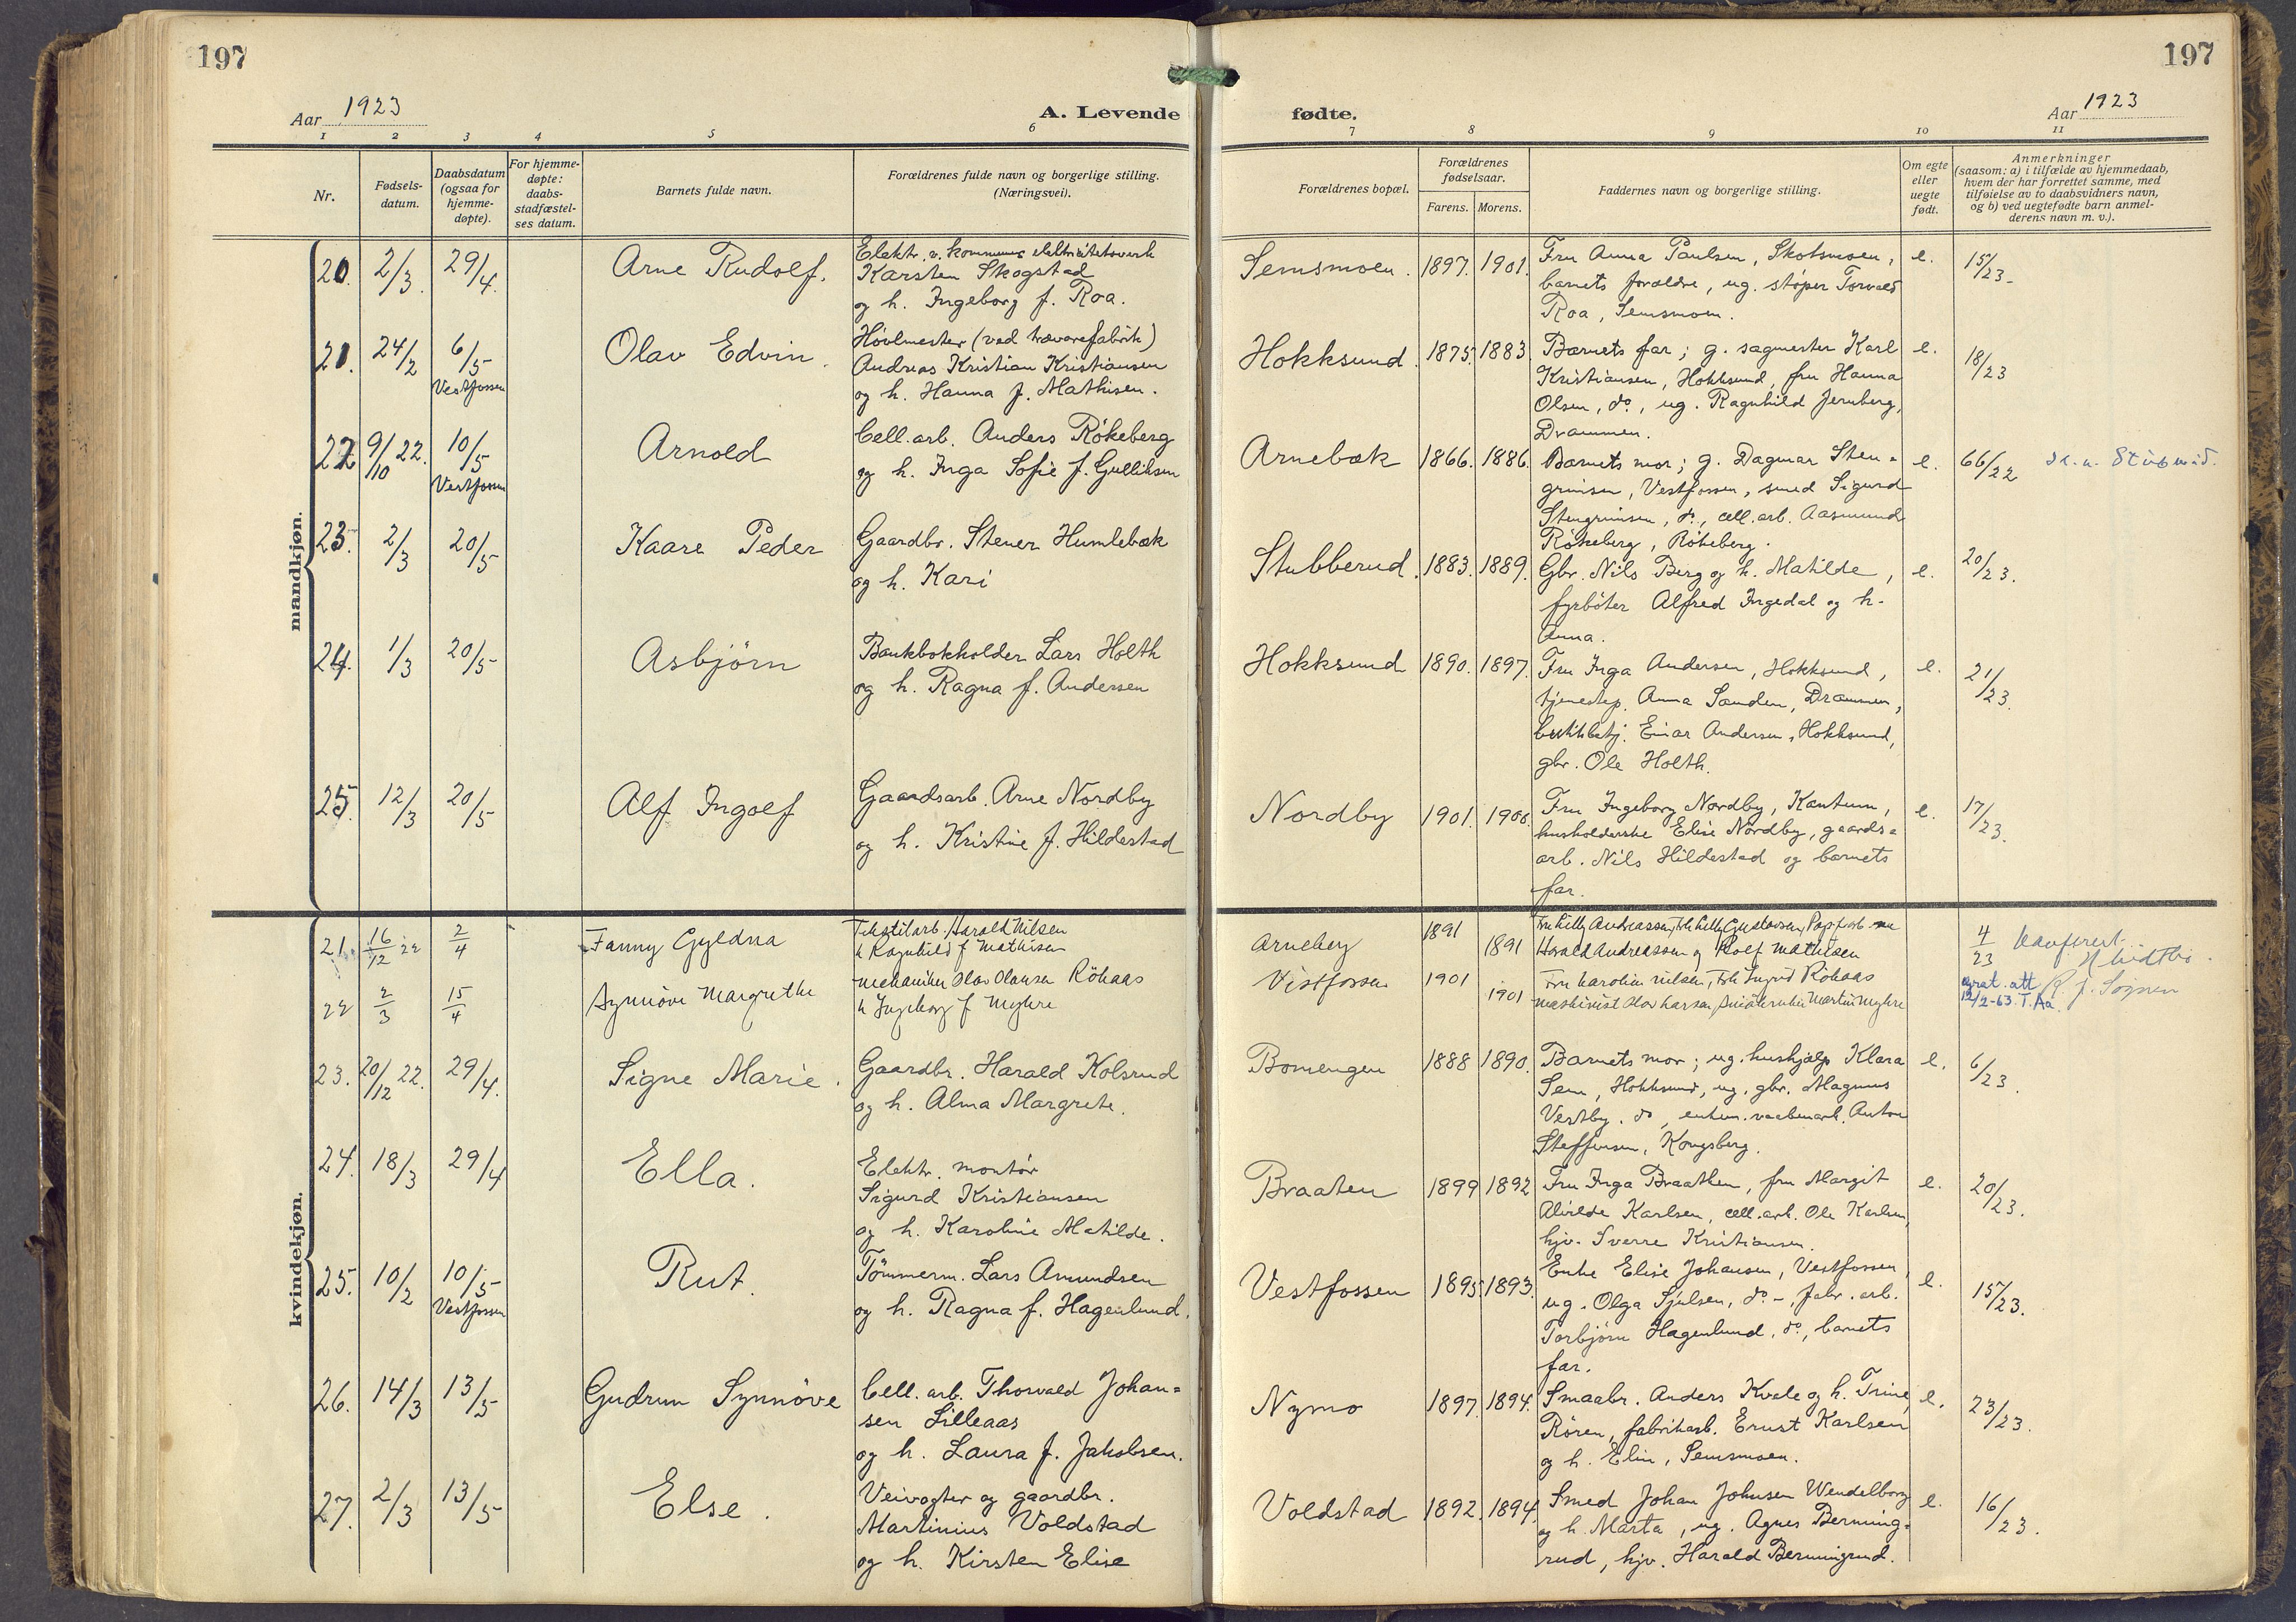 197
197
Aar 1923
A. Levende
fødte.
Aar 1923
1 2 3 4 5 6
7 8 9 10 11
Nr.
Fødsels-
datum.
Daabsdatum
(ogsaa for
hjemme-
døpte).
For hjemme-
døpte:
daabs-
stadfæstel-
ses datum.
Barnets fulde navn.
Forældrenes fulde navn og borgerlige stilling.
(Næringsvei).
Forældrenes bopæl.
Forældrenes
fødselsaar.
Farens. Morens.
Faddernes navn og borgerlige stilling.
Om egte
eller
uegte
født.
Anmerkninger
(saasom: a) i tilfælde av hjemmedaab,
hvem der har forrettet samme, med
tilføielse av to daabsvidners navn,
og b) ved uegtefødte barn anmel-
derens navn m. v.).
mandkjøn.
20. 2/3. 29/4. Arne Rudolf.
Elektr. v. kommunes elektricitetsverk
Karsten Skogstad
og h. Ingeborg f. Roa.
Semsmoen. 1897. 1901.
Fru Anna Paulsen, Skotsmoen,
barnets forældre, ug. støper Torvald
Roa, Semsmoen.
e. 15/23.
21. 24/2 6/5
Vestfossen
Olav Edvin.
Høvlmester (ved trævarefabrik)
Andreas Kristian Kristiansen
og h. Hanna f. Mathisen.
Hokksund. 1875. 1883.
Barnets far; g. sagmester Karl
Kristiansen, Hokksund, fru Hanna
Olsen, do., ug. Ragnhild Jernberg,
Drammen.
e. 18/23
22 9/10 22. 10/5
Vestfossen
Arnold
Cell. arb. Anders Røkeberg
og h. Inga Sofie f. Gulliksen
Arnebæk 1866. 1886.
Barnets mor; g. Dagmar Sten-
grimsen, Vestfossen, smed Sigurd
Stengrimsen, do., cell. arb. Aasmund
Røkeberg, Røkeberg.
e. 66/22
23. 2/3 20/5 Kaare Peder
Gaardbr. Stener Humlebæk
og h. Kari
Stubberud. 1883. 1889.
Gbr. Nils Berg og h. Matilde,
fyrbøter Alfred Ingedal og h.
Anna.
e. 20/23.
24. 1/3 20/5 Asbjörn
Bankbokholder Lars Holth
og h. Ragna f. Andersen
Hokksund 1890. 1897.
Fru Inga Andersen, Hokksund,
tjenestep. Anna Sanden, Drammen,
butikbetj. Einar Andersen, Hokksund,
gbr. Ole Holth.
e. 21/23.
25. 12/3 20/5 Alf Ingolf
Gaardsarb. Arne Nordby
og h. Kristine f. Hildestad
Nordby 1901. 1900.
Fru Ingeborg Nordby, Kantum,
husholderske Elise Nordby, gaards-
arb. Nils Hildestad og barnets
far.
e. 17/23.
kvindekjøn.
21. 16/12 22 2/4 Fanny Gyldna
Tekstilarb. Harald Nilsen
h Ragnhild f Mathisen
Arneberg 1891 1891
Fru Lilly Andreassen, Frk Lilly Gustavsen,
Harald Andreassen og Rolf Mathisen
4/23 konferert
22 2/3 15/4 Synnöve Margrethe
Mekaniker Olav Olausen Röhaas
h Ingeborg f Myhre
Vestfossen 1901 1901
Fru Karoline Nilsen, Frk Ingrid Röhaas
maskinist Olav Larsen, Martin Myhre
att
12/2-63. T. Aa.
23. 20/12 22. 29/4. Signe Marie.
Gaardbr. Harald Kolsrud
og h. Alma Margrete.
Bomengen 1888 1890.
Barnets mor; ug. hushjælp Klara
Sem, Hokksund, ug. gbr. Magnus
Vestby. do, enkem. vaabenarb. Anton
Steffensen, Kongsberg.
e. 6/23.
24. 18/3 29/4 Ella.
Elektr. montör
Sigurd Kristiansen
og h. Karoline Matilde.
Braaten 1899 1892
Fru Inga Braathen, fru Margit
Alvilde Karlsen, cell. arb. Ole Karlsen,
hjv. Sverre Kristiansen.
e. 20/23.
25. 10/2 10/5
Vestfossen
Rut.
Tömmerm. Lars Amundsen
og h. Ragna f. Hagenlund.
Vestfossen 1895. 1893.
Enke Elise Johansen, Vestfossen,
ug. Olga Sjulsen, do. -, fabr. arb.
Torbjörn Hagenlund, do., barnets
far.
e. 15/23.
26. 14/3 13/5 Gudrun Synnöve
Cell. arb. Thorvald Johan-
sen Lilleaas
og h. Laura f. Jakobsen.
Nymo 1897. 1894.
Smaabr. Anders Kvale og h. Trine,
Røren, fabrikarb. Ernst Karlsen
og h. Elin, Semsmoen.
e. 23/23.
27. 2/3 13/5 Else.
Veivogter og gaardbr.
Martinius Voldstad
og h. Kirsten Elise
Voldstad 1892. 1894.
Smed Johan Johnsen Wendelborg
og h. Marta, ug. Agnes Berming-
rud, hjv. Harald Bermingrud.
e. 16/23.